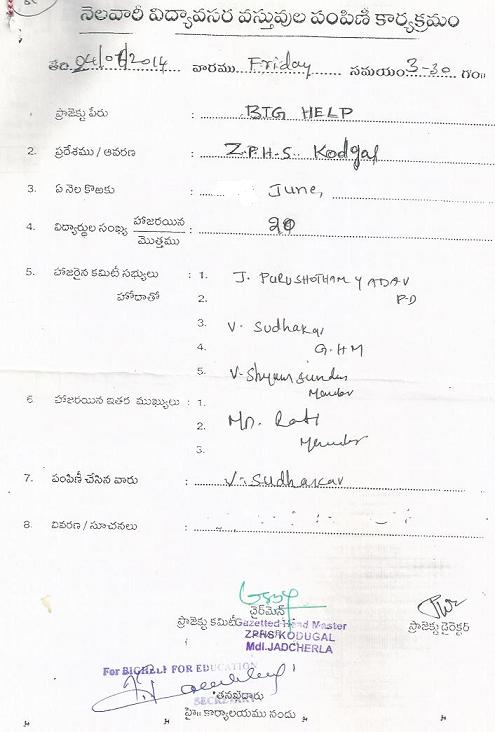 నెలవారీ విద్యావసర వస్తువుల పంపిణీ కార్యక్రమం
తేది: 04/07/2014 వారము Friday సమయం 3-30 గం॥
ప్రాజెక్టు పేరు : BIG HELP
2. ప్రదేశము / ఆవరణ : Z.P.H-S. Kodgal
3. ఏ నెల కొఱకు : June,
4. విద్యార్థుల సంఖ్య హాజరయిన / మొత్తము : 20
5. హాజరైన కమిటీ సభ్యులు : 1. J. PURUSHOTHAM YADAV
హోదాతో 2. P.D
3. V. Sudhakar
4. G.HM
5. V. Shyam Sunder
Member
6. హాజరయిన ఇతర ముఖ్యులు : 1.
2. Mr. Ravi
3. Member
7. పంపిణీ చేసిన వారు : V. Sudhakar
8. వివరణ / సూచనలు :
ప్రాజెక్టు కమిటీ ఛైర్‌మెన్
ప్రాజెక్టు డైరెక్టర్
Gazetted Head Master
ZPHS KODUGAL
Mdl. JADCHERLA
For BIGHELP FOR EDUCATION
SECRETARY
హై॥ కార్యాలయము నందు